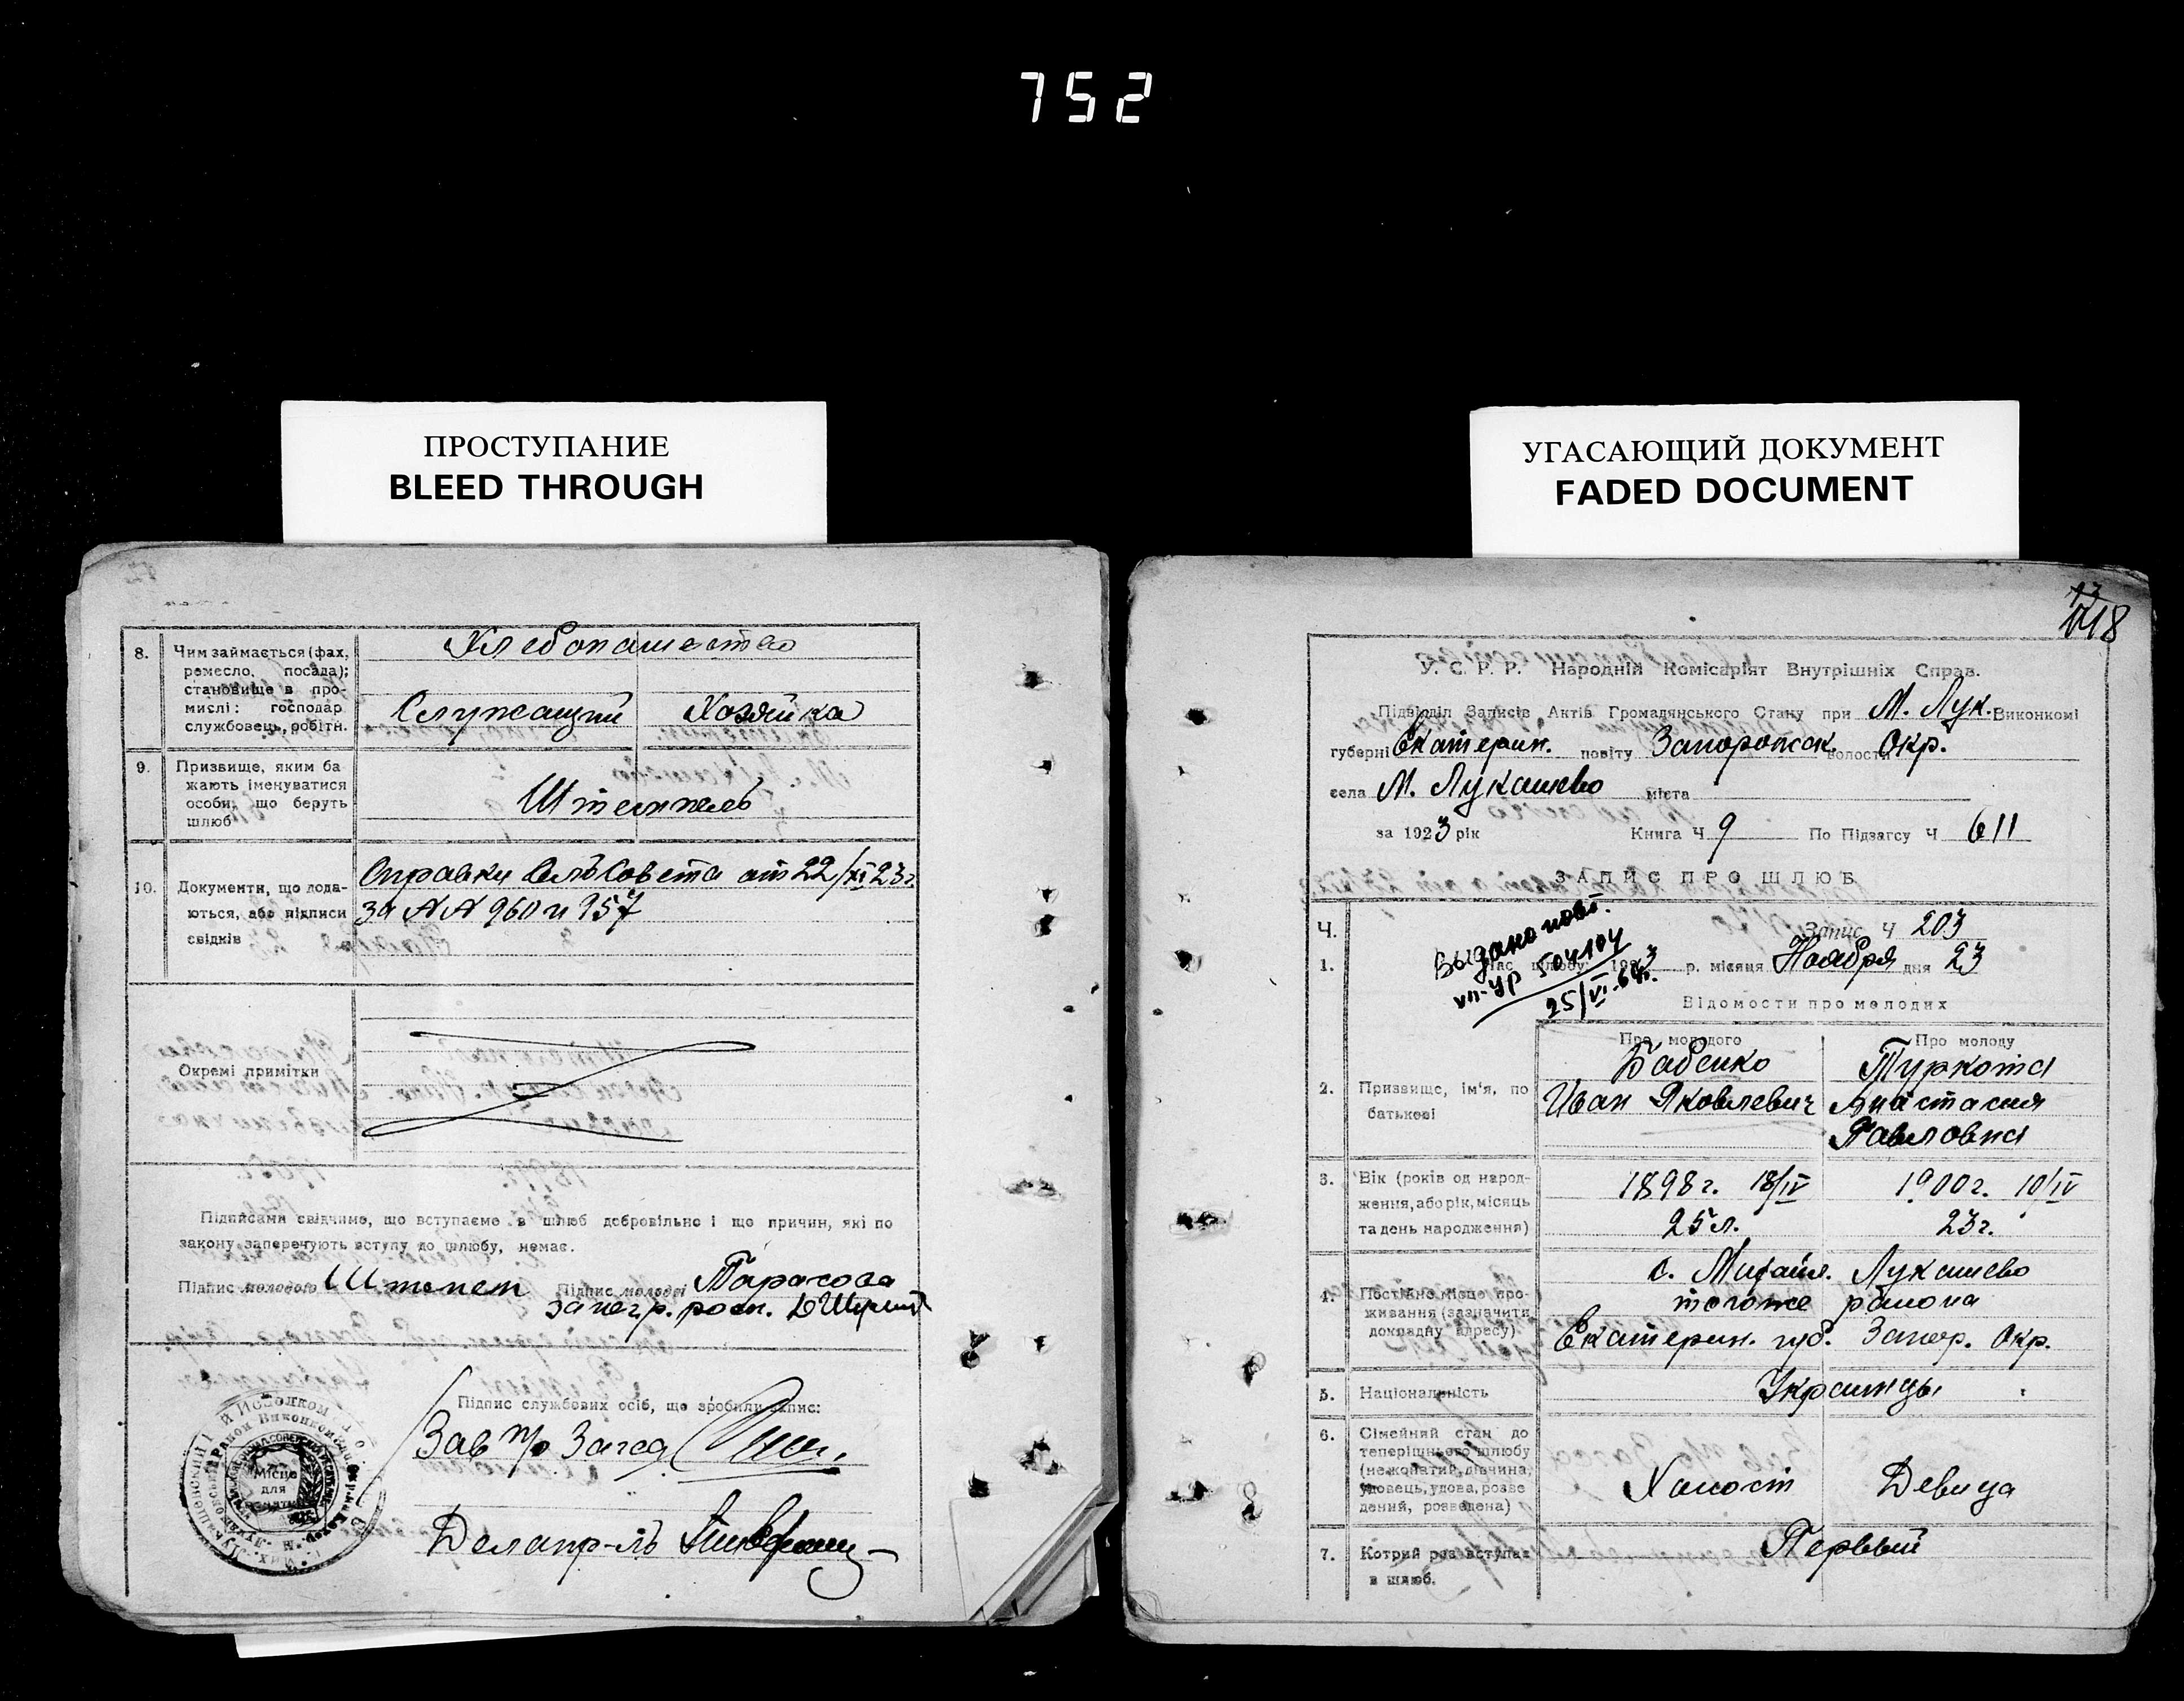 752
ПРОСТУПАНИЕ
BLEED THROUGH
8. Чим займається (фах, ремесло, посада); становище в промислі: господар службовець, робітн.
Хлебопашество
Служащий Хозяйка
9. Призвище, яким бажають іменуватися особи, що беруть шлюб
Штемпель
10. Документи, що додаються, або підписи свідків
Справки СельСовета от 22/XI 23г.
за №№ 960 и 957
Окремі примітки
Підписами свідчимо, що вступаємо в шлюб добровільно і що причин, які по
закону заперечують вступу до шлюбу, немає.
Підпис молодого Штемпел Підпис молодої Тарасова
за негр. росп.
Підпис службових осіб, що зробили запис:
Зав п/о Загса
Делопр-ль
Місце
для
печатки
УГАСАЮЩИЙ ДОКУМЕНТ
FADED DOCUMENT
18
У. С. Р. Р. Народній Комісаріят Внутрішніх Справ.
Підвідділ Записів Актів Громадянського Стану при М. Лук. Виконкомі
губерні Екатерин. повіту Запорожск. волости Окр.
села М. Лукашево міста
за 1923 рік Книга Ч 9 По Підзагсу Ч 611
ЗАПИС ПРО ШЛЮБ
Ч. Запис Ч 203
1. Час шлюбу: 1923 р. місяця Ноября дня 23
Выдано повт.
УР 504104
25/VI-64г.
Відомости про молодих
Про молодого Про молоду
2. Призвище, ім'я, по батькові
Бабенко Туркота
Иван Яковлевич Анастасия
Павловна
3. Вік (років од народження, або рік, місяць та день народження)
1898г. 18/IV 1900г. 10/IV
25л. 23г.
4. Постійне місце проживання (зазначити докладну адресу)
с. Михайл. Лукашево
тогоже района
Екатерин. губ. Запор. Окр.
5. Національність
Украинцы
6. Сімейний стан до теперішнього шлюбу (нежонатий, дівчина, удовець, удова, розведений, розведена)
Холост Девица
7. Котрий раз вступає в шлюб.
Первый